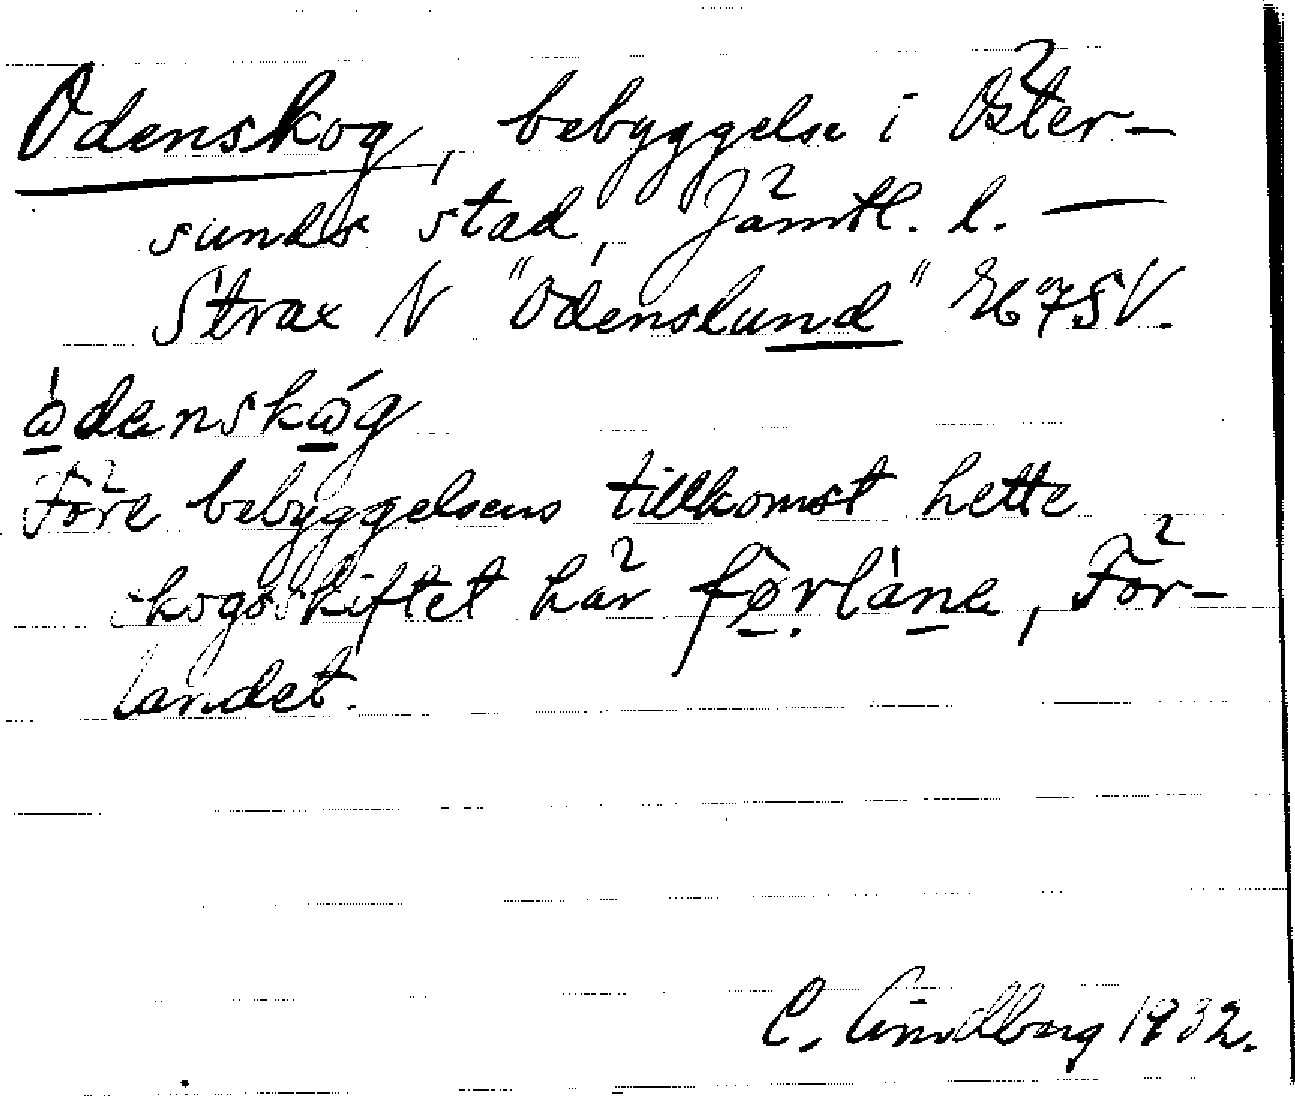 Odenskog, bebyggelse i Öster-
sunds stad, Jämtl. l. —
Strax N "Odenslund" 7SV.
òdenskóg
Före bebyggelsens tillkomst hette
skogsskiftet här førlàne, För-
landet.
C. Lindberg 1932.